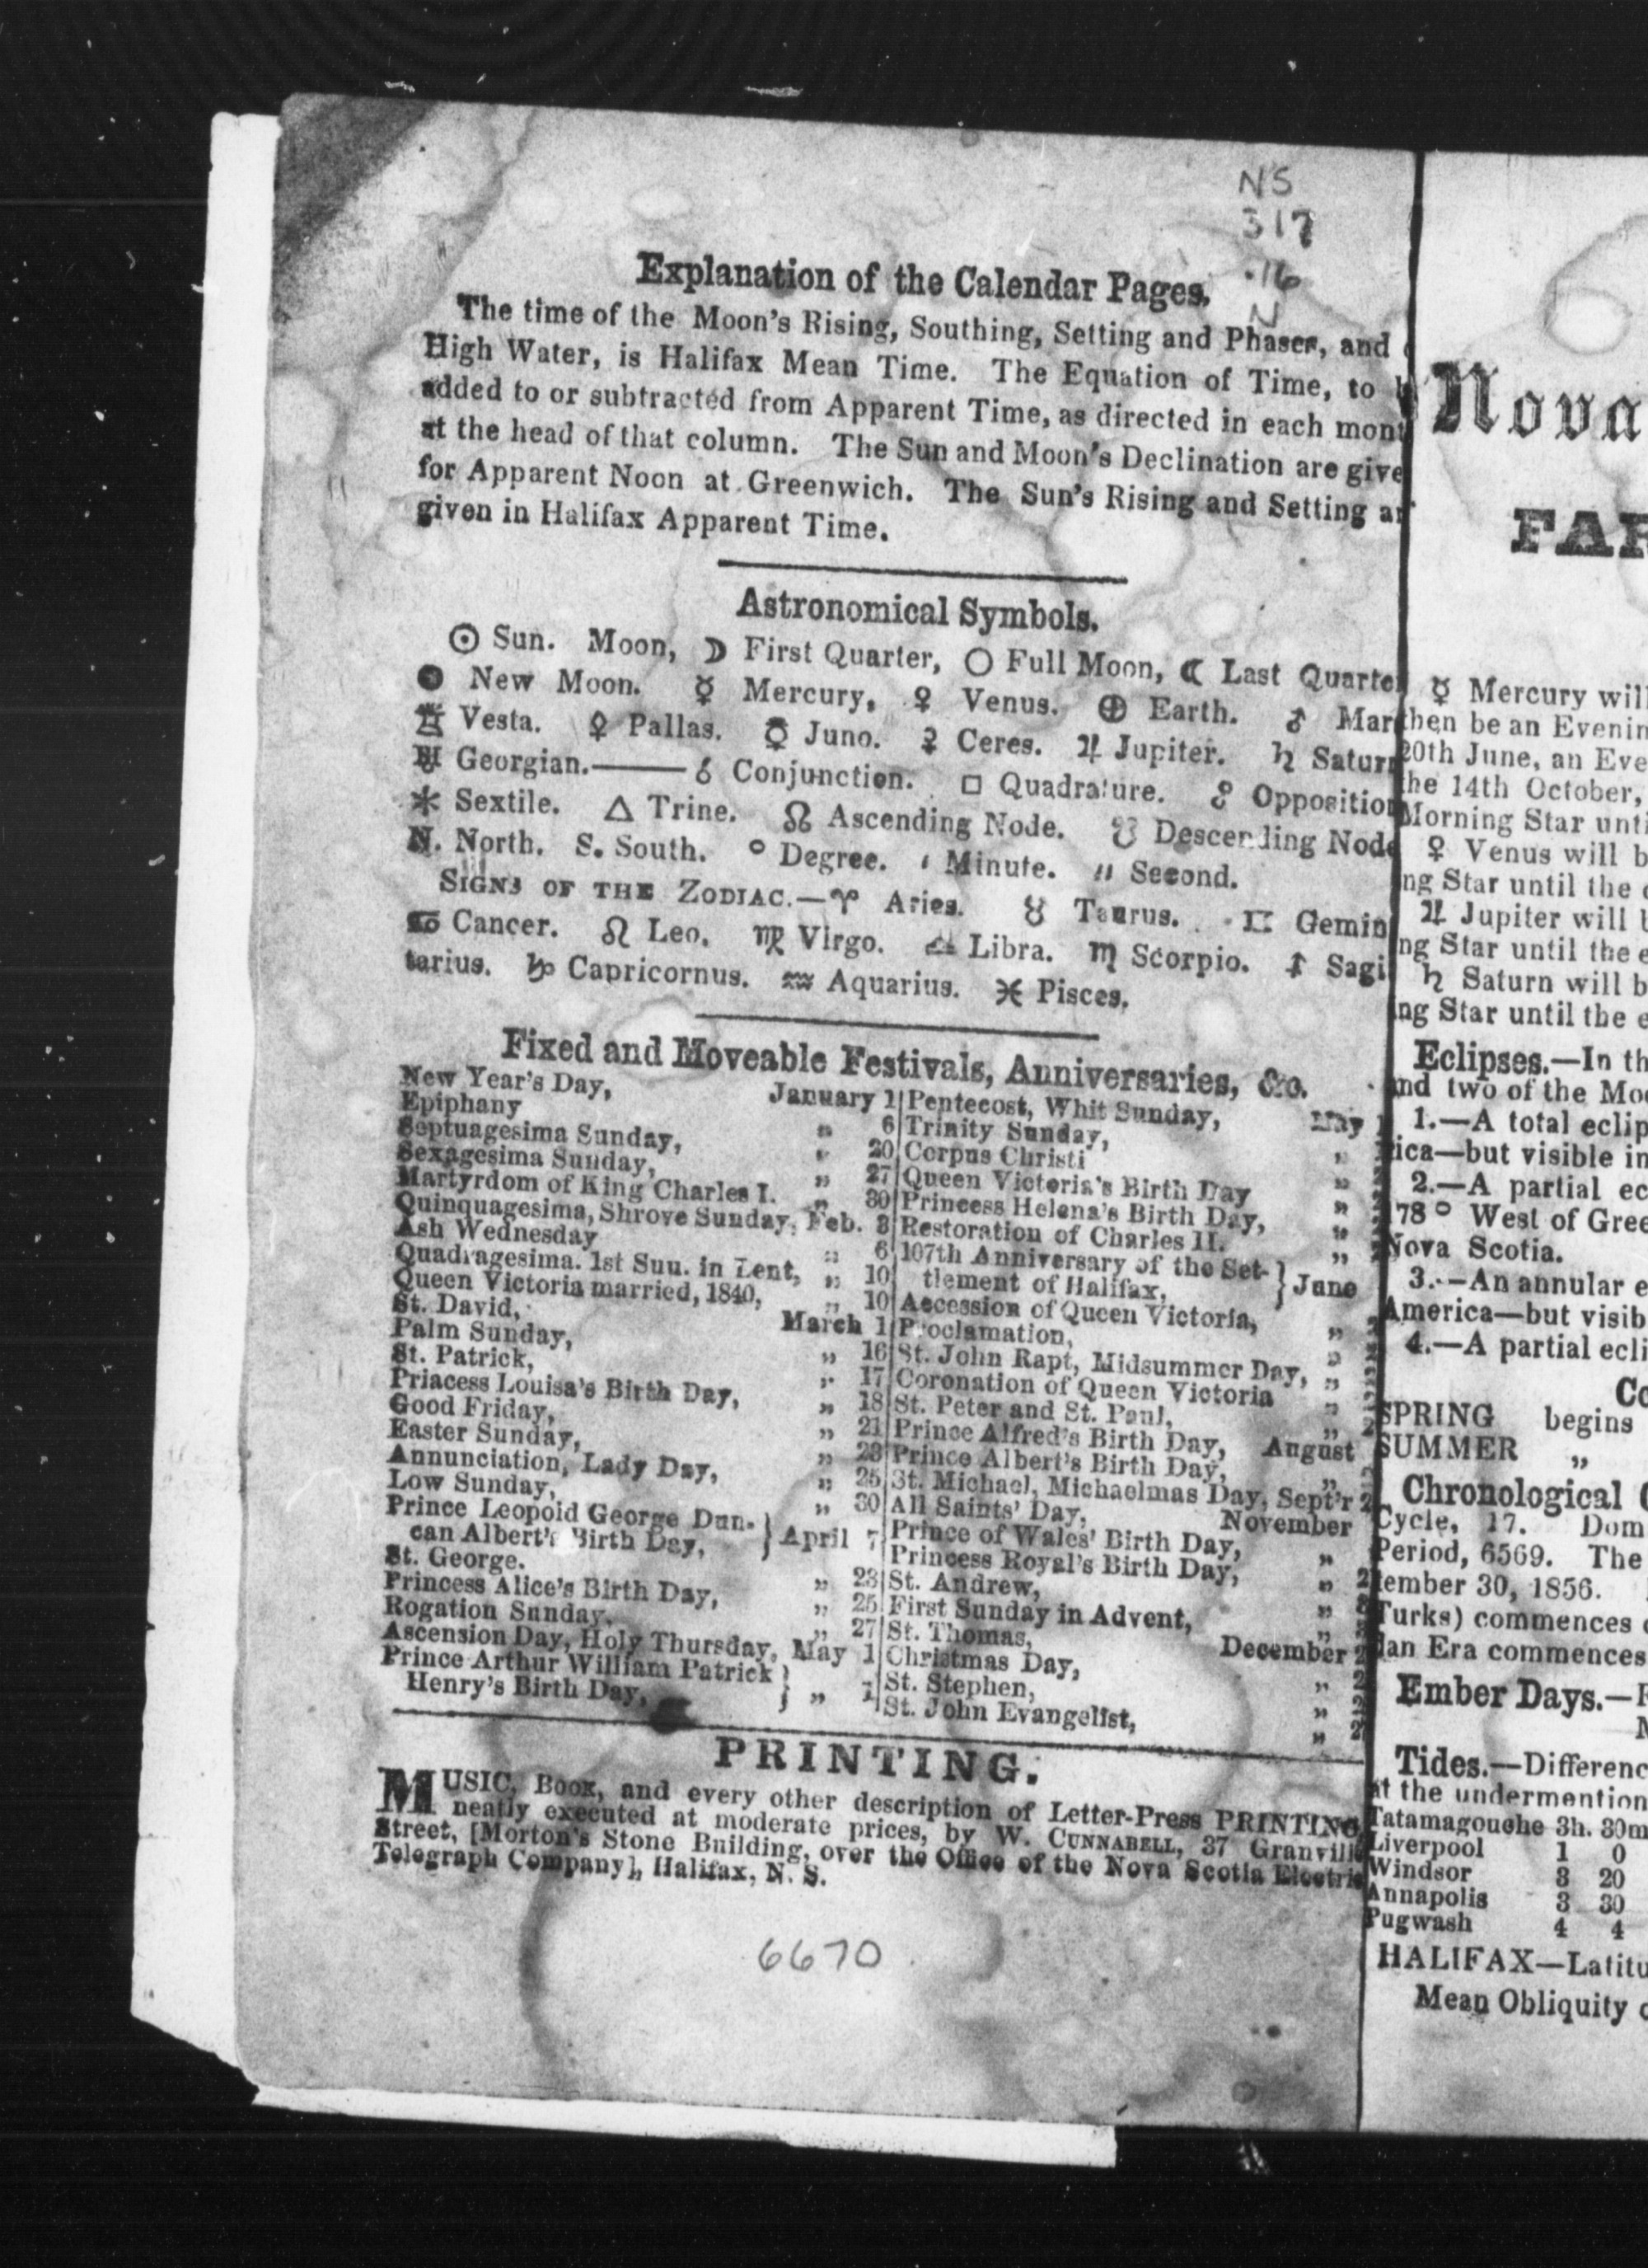 NS
317
.16
N
Explanation of the Calendar Pages.
The time of the Moon's Rising, Southing, Setting and Phases, and
High Water, is Halifax Mean Time. The Equation of Time, to
added to or subtracted from Apparent Time, as directed in each mont
at the head of that column. The Sun and Moon's Declination are give
for Apparent Noon at Greenwich. The Sun's Rising and Setting ar
given in Halifax Apparent Time.
Astronomical Symbols.
☉ Sun. Moon, ☽ First Quarter, ○ Full Moon, ☾ Last Quarte
● New Moon. ☿ Mercury, ♀ Venus. ⊕ Earth. ♂ Mar
Vesta. Pallas. Juno. Ceres. ♃ Jupiter. ♄ Satur
Georgian.—— ☌ Conjunction. □ Quadrature. ☍ Opposition
* Sextile. △ Trine. ☊ Ascending Node. ☋ Descending Node
N. North. S. South. ° Degree. ′ Minute. ″ Second.
SIGNS OF THE ZODIAC.—♈ Aries. ♉ Taurus. ♊ Gemin
♋ Cancer. ♌ Leo. ♍ Virgo. ♎ Libra. ♏ Scorpio. ♐ Sagi
tarius. ♑ Capricornus. ♒ Aquarius. ♓ Pisces.
Fixed and Moveable Festivals, Anniversaries, &c.
New Year's Day, January 1
Epiphany „ 6
Septuagesima Sunday, „ 20
Sexagesima Sunday, „ 27
Martyrdom of King Charles I. „ 30
Quinquagesima, Shrove Sunday, Feb. 3
Ash Wednesday „ 6
Quadragesima. 1st Sun. in Lent, „ 10
Queen Victoria married, 1840, „ 10
St. David, March 1
Palm Sunday, „ 16
St. Patrick, „ 17
Princess Louisa's Birth Day, „ 18
Good Friday, „ 21
Easter Sunday, „ 23
Annunciation, Lady Day, „ 25
Low Sunday, „ 30
Prince Leopold George Dun-
can Albert's Birth Day, } April 7
St. George. „ 23
Princess Alice's Birth Day, „ 25
Rogation Sunday. „ 27
Ascension Day, Holy Thursday, May 1
Prince Arthur William Patrick
Henry's Birth Day, } „ 1
Pentecost, Whit Sunday, May
Trinity Sunday, „
Corpus Christi „
Queen Victoria's Birth Day „
Princess Helena's Birth Day, „
Restoration of Charles II. „
107th Anniversary of the Set-
tlement of Halifax, } June
Accession of Queen Victoria, „
Proclamation, „
St. John Bapt, Midsummer Day, „
Coronation of Queen Victoria „
St. Peter and St. Paul, „
Prince Alfred's Birth Day, August
Prince Albert's Birth Day, „
St. Michael, Michaelmas Day, Sept'r 2
All Saints' Day, November
Prince of Wales' Birth Day, „
Princess Royal's Birth Day, „ 2
St. Andrew, „
First Sunday in Advent, „
St. Thomas, December 2
Christmas Day, „ 2
St. Stephen, „
St. John Evangelist, „ 2
PRINTING.
MUSIC, BOOK, and every other description of Letter-Press PRINTING
neatly executed at moderate prices, by W. CUNNABELL, 37 Granvill
Street, [Morton's Stone Building, over the Office of the Nova Scotia Electri
Telegraph Company], Halifax, N. S.
6670
Nova
FAR
☿ Mercury will
then be an Evenin
20th June, an Eve
the 14th October,
Morning Star unti
♀ Venus will b
ng Star until the
♃ Jupiter will
ng Star until the e
♄ Saturn will b
ing Star until the e
Eclipses.—In th
and two of the Moo
1.—A total eclip
ica—but visible in
2.—A partial ec
178° West of Gree
Nova Scotia.
3.—An annular e
America—but visib
4.—A partial ecli
Co
SPRING begins
SUMMER „
Chronological
Cycle, 17. Dom
Period, 6569. The
tember 30, 1856.
Turks) commences
ian Era commences
Ember Days.—
Tides.—Differenc
at the undermention
Tatamagouche 3h. 30m
Liverpool 1 0
Windsor 3 20
Annapolis 3 30
Pugwash 4 4
HALIFAX—Latitu
Mean Obliquity